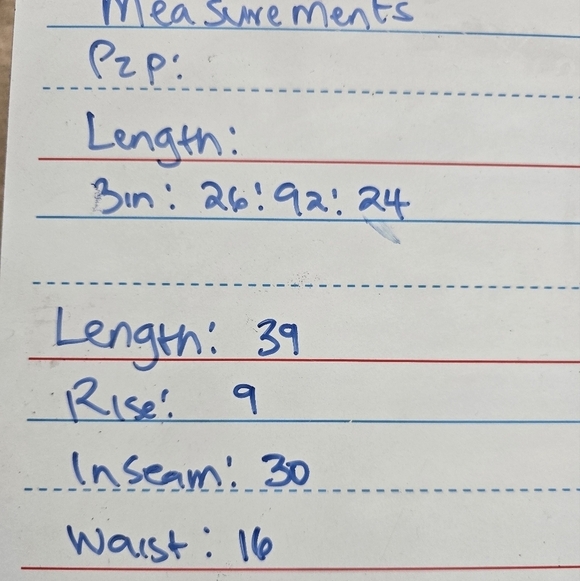 Measurements
P2P:
Length:
Bin: 26: 92: 24
Length: 39
Rise: 9
Inseam: 30
Waist: 16